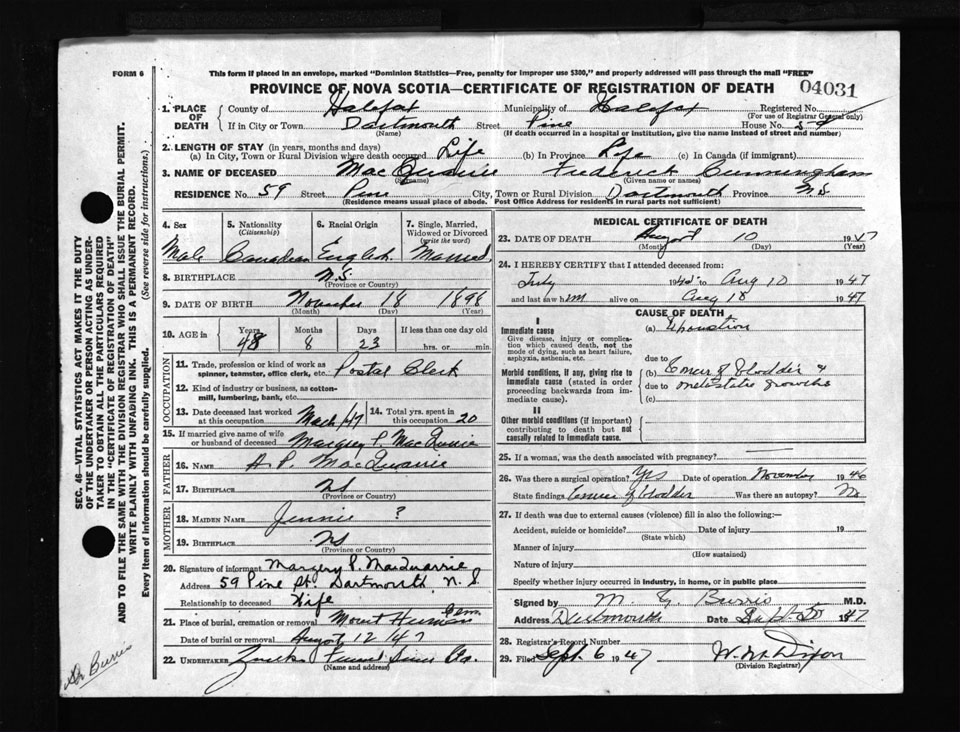 FORM 6
This form if placed in an envelope, marked "Dominion Statistics—Free, penalty for improper use $300," and properly addressed will pass through the mail "FREE"
PROVINCE OF NOVA SCOTIA—CERTIFICATE OF REGISTRATION OF DEATH
04031
1. PLACE OF DEATH
County of Halifax Municipality of Halifax Registered No.
(For use of Registrar General only)
If in City or Town Dartmouth Street Pine House No. 59
(Name) (If death occurred in a hospital or institution, give the name instead of street and number)
2. LENGTH OF STAY (in years, months and days)
(a) In City, Town or Rural Division where death occurred Life (b) In Province Life (c) In Canada (if immigrant)
3. NAME OF DECEASED MacQuarrie Frederick Cunningham
(Surname) (Given name or names)
RESIDENCE No. 59 Street Pine City, Town or Rural Division Dartmouth Province N.S
(Residence means usual place of abode. Post Office Address for residents in rural parts not sufficient)
4. Sex 5. Nationality (Citizenship) 6. Racial Origin 7. Single, Married, Widowed or Divorced (write the word)
Male Canadian English Married
8. BIRTHPLACE N.S.
(Province or Country)
9. DATE OF BIRTH November 18 1898
(Month) (Day) (Year)
10. AGE in Years Months Days If less than one day old
48 8 23 hrs. or min.
OCCUPATION
11. Trade, profession or kind of work as spinner, teamster, office clerk, etc. Postal Clerk
12. Kind of industry or business, as cotton-mill, lumbering, bank, etc.
13. Date deceased last worked at this occupation March/47 14. Total yrs. spent in this occupation 20
15. If married give name of wife or husband of deceased Margery P. MacQuarrie
FATHER
16. NAME A. P. MacQuarrie
17. BIRTHPLACE NS
(Province or Country)
MOTHER
18. MAIDEN NAME Jennie ?
19. BIRTHPLACE NS
(Province or Country)
20. Signature of informant Margery P. MacQuarrie
Address 59 Pine St. Dartmouth N.S
Relationship to deceased Wife
21. Place of burial, cremation or removal Mount Herman Cem
Date of burial or removal August 12 1947
22. UNDERTAKER Funeral
(Name and address)
MEDICAL CERTIFICATE OF DEATH
23. DATE OF DEATH August 10 1947
(Month) (Day) (Year)
24. I HEREBY CERTIFY that I attended deceased from:
July 194 to Aug 10 1947
and last saw him alive on Aug 10 1947
CAUSE OF DEATH
I
Immediate cause (a)
Give disease, injury or complication which caused death, not the mode of dying, such as heart failure, asphyxia, asthenia, etc.
due to
Morbid conditions, if any, giving rise to immediate cause (stated in order proceeding backwards from immediate cause).
(b) Cancer of bladder &
due to metastatic growths
(c)
II
Other morbid conditions (if important) contributing to death but not causally related to immediate cause.
25. If a woman, was the death associated with pregnancy?
26. Was there a surgical operation? Yes Date of operation November 1946
State findings Cancer of bladder Was there an autopsy? No
27. If death was due to external causes (violence) fill in also the following:—
Accident, suicide or homicide? Date of injury 19
(State which)
Manner of injury
(How sustained)
Nature of injury
Specify whether injury occurred in industry, in home, or in public place
Signed by M. G. Burris M.D.
Address Dartmouth Date Sept 1947
28. Registrar's Record Number
29. Filed Sept. 6 1947 W. W. Dixon
(Division Registrar)
SEC. 46—VITAL STATISTICS ACT MAKES IT THE DUTY
OF THE UNDERTAKER OR PERSON ACTING AS UNDER-
TAKER TO OBTAIN ALL THE PARTICULARS REQUIRED
IN THE "CERTIFICATE OF REGISTRATION OF DEATH"
AND TO FILE THE SAME WITH THE DIVISION REGISTRAR WHO SHALL ISSUE THE BURIAL PERMIT.
WRITE PLAINLY WITH UNFADING INK. THIS IS A PERMANENT RECORD.
Every item of information should be carefully supplied. (See reverse side for instructions.)
Dr Burris